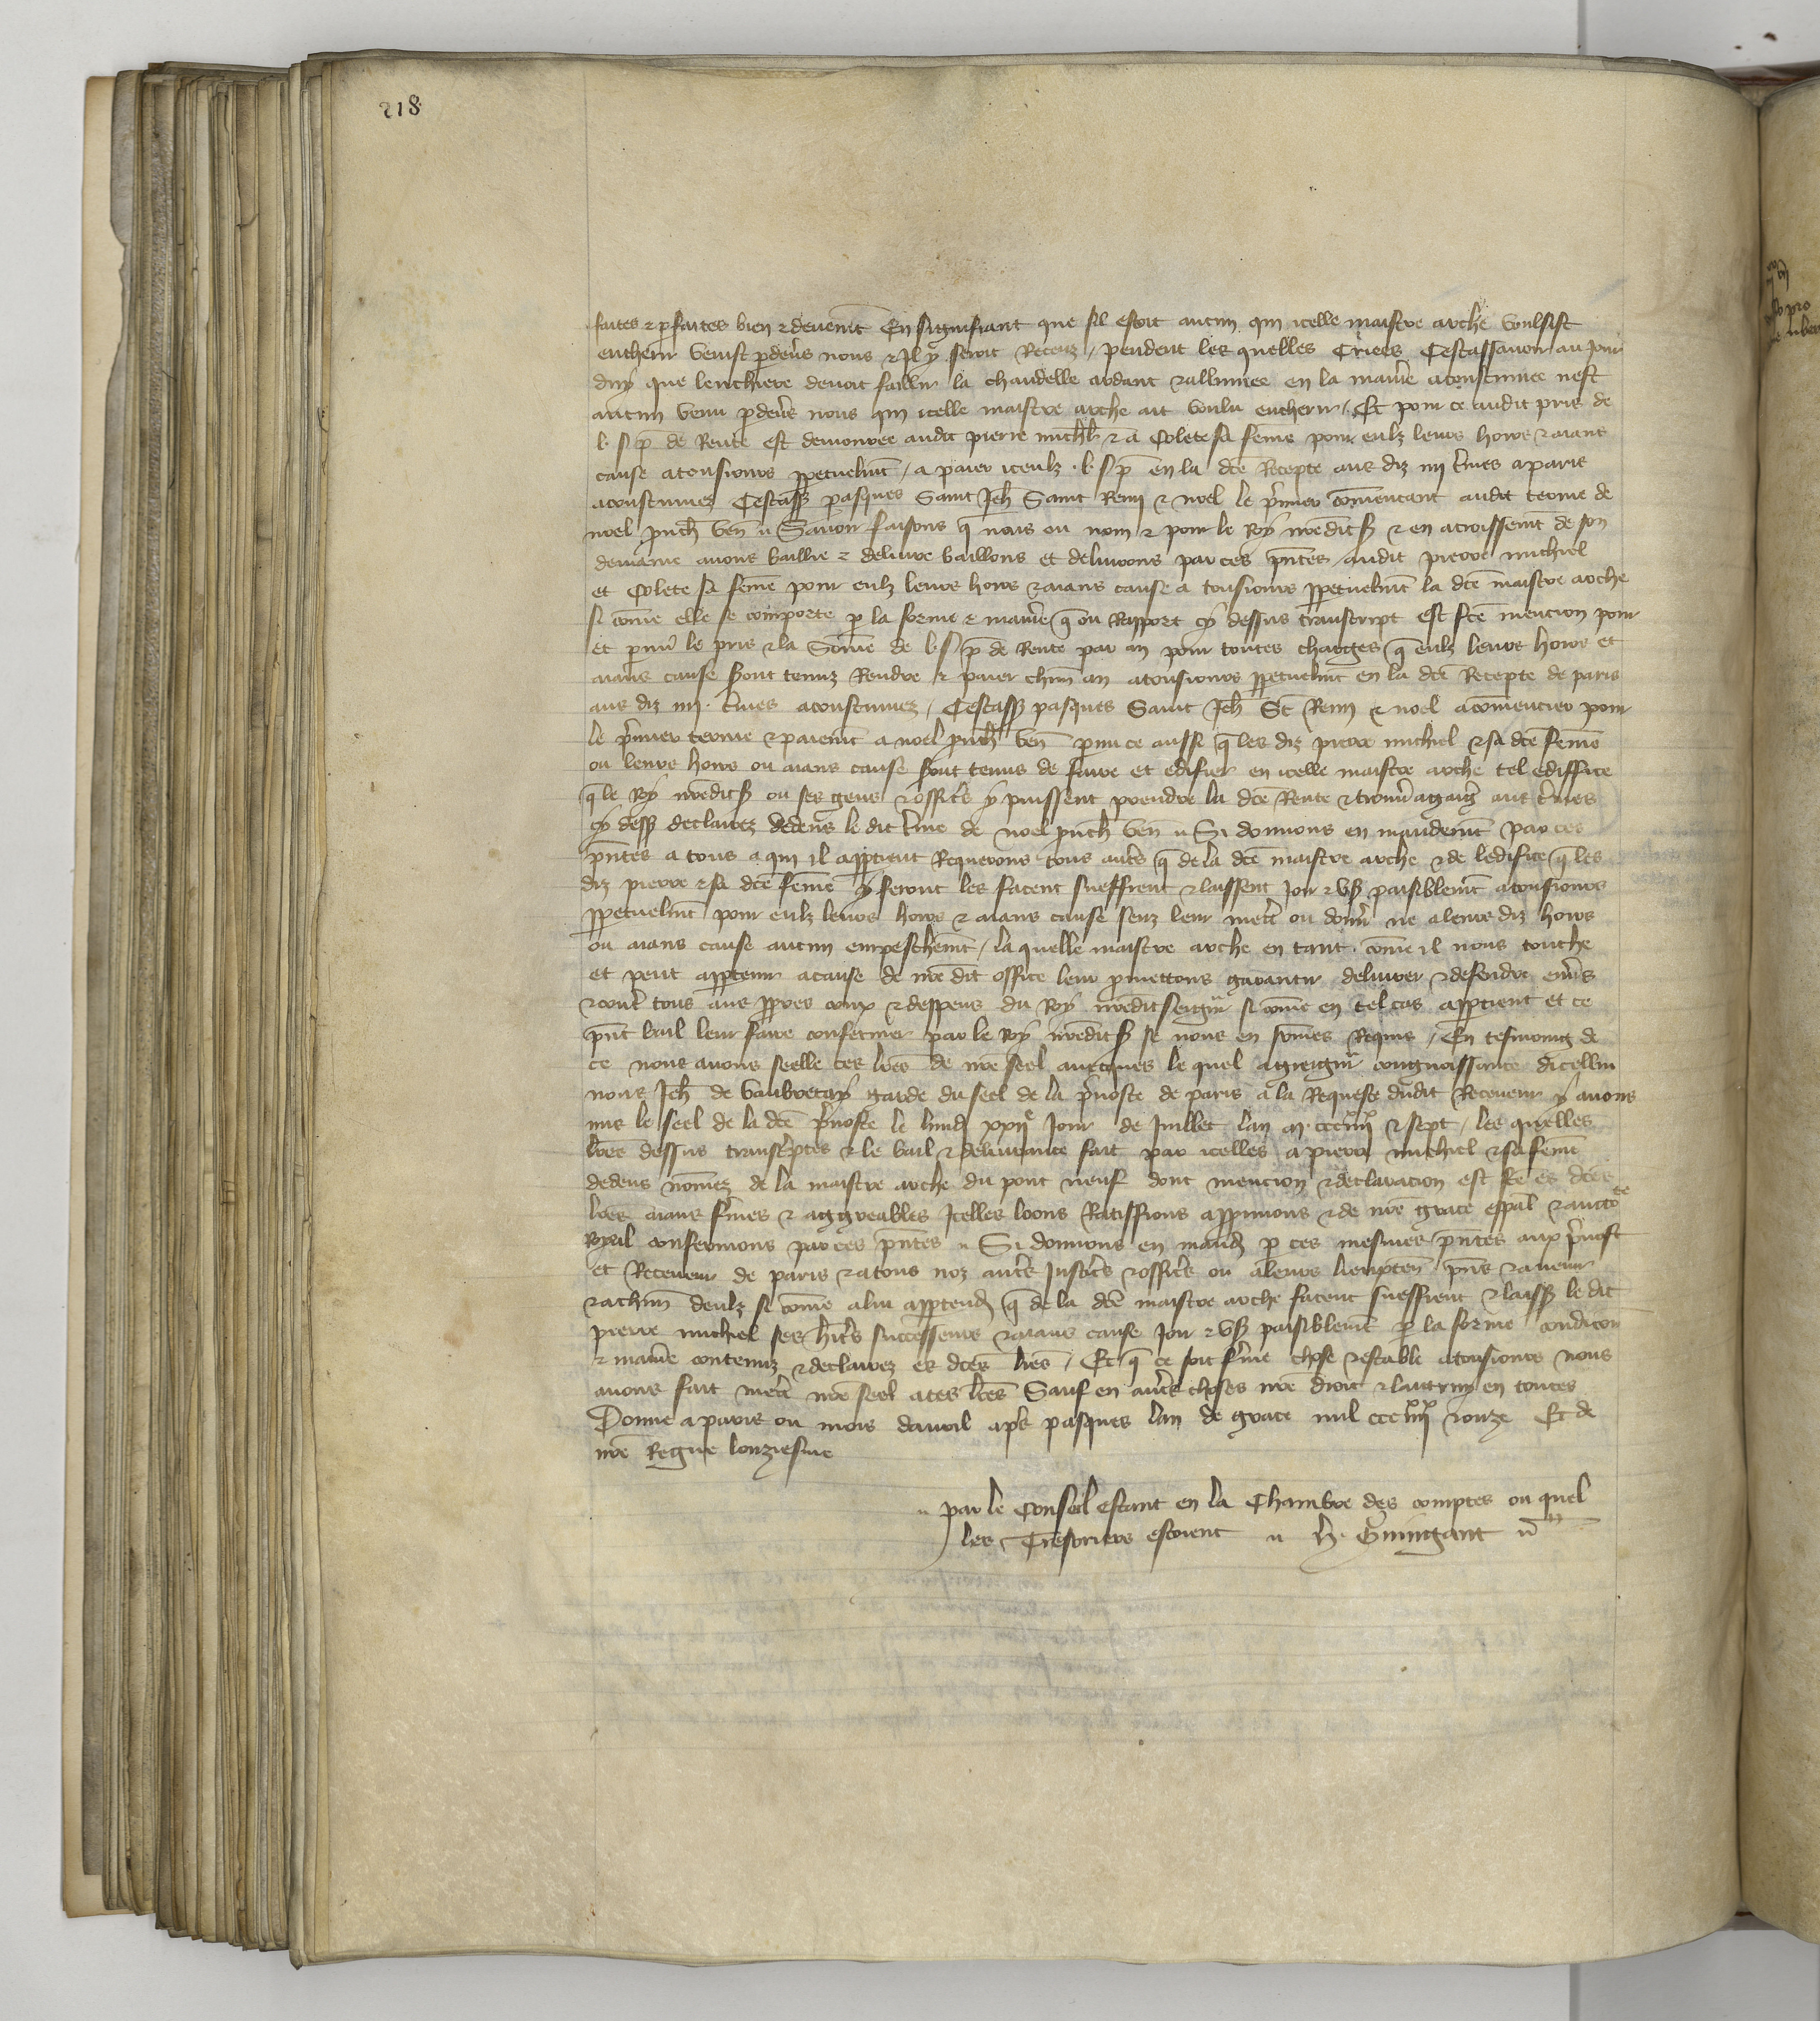 218
faites ⁊ p̲faites bien ⁊ deuem̄t En signifiant que sil estoit aucun qui icelle maistre arche voulsist
encherir venist p̲deu̾s nous ⁊ Il y seroit Receuz / pendent les quelles Criees Cestassauoir au Jour
duy que lenchiere deuoit faillir la chandelle ardant ⁊ allumee en la mani̾e acoustumee nest
aucun venu p̲deu̾s nous qui icelle maistre arche ait voulu encherir / Et pour ce audit pris de
l· s p̄ de Rente est demouree audit pierre mich̄l ⁊ a Colete sa fem̄e pour eulz leurs hoirs ⁊ aians
cause atousiours ꝑpetuelm̄t / a paier iceulz ·l· s p̄ en la dcē Recepte aus diz iiii t̾mes a paris
acoustumez Cestass̄ pasques Saint Jeh̄ Saint Remi ⁊ noel le p̾mier com̄encant audit terme de
noel prouch̄ ven̄ Sauoir faisons q̄ nous ou nom ⁊ pour le Roy nr̄edit s̄ ⁊ en acroissem̄t de son
demaine auons baillie ⁊ deliure baillons et deliurons par ces pn̄tes audit pierre michiel
et Colete sa fem̄e pour eulz leurs hoirs ⁊ aians cause a tousiours ꝑpetuelm̄t la dcē maistre arche
si com̄e elle se comporte p̲ la forme ⁊ mani̾e q̄ ou Rapport cy dessus transcript est fcē mencion pour
et p̲mi le pris ⁊ la Som̄e de l· s p̄ de Rente par an pour toutes charges q̄ eulz leurs hoirs et
aians cause sont tenuz Rendre ⁊ paier chūn an atousiours ꝑpetuelm̄t en la dcē Recepte de paris
aus diz iiii· t̾mes acoustumez / Cestass̄ pasques Saint Jeh̄ St̄ Remi ⁊ noel acom̄encier pour
le p̾mier terme ⁊ paiem̄t a noel prouch̄ ven̄ p̲mi ce ausse q̄ les diz pierre michiel ⁊ sa dcē fem̄e
ou leurs hoirs ou aians cause sont tenus de faire et edifier en icelle maistre arche tel ediffice
q̄ le Roy nr̄edit s̄ ou ses gens ⁊ offic̾s y puissent prendre la dcē Rente aus t̾mes
cy dess̄ declairez dedens le dit t̾me de noel prouch̄ ven̄ Si donnons en mandem̄t par ces
pn̄tes a tous a qui il appartient Requerons tous aut̾s q̄ de la dcē maistre arche ⁊ de ledifice q̄ les
diz pierre ⁊ sa dcē fem̄e y feront les facent sueffrent ⁊ laissent Joir ⁊ vs̄ paisiblem̄t atousiours
ꝑpetuelm̄t pour eulz leurs hoirs ⁊ aians cause senz leur mett̾ ou donn̾ ne a leurs diz hoirs
ou aians cause aucun empeschem̄t / la quelle maistre arche en tant· com̄e il nous touche
et peut appartenir acause de nr̄e dit office leur p̲mettons garantir deliurer ⁊ defendre enu̾s
⁊ cont̾ tous aus ꝓpres coux ⁊ despens du Roy nr̄edit seign̾r si com̄e en tel cas appartient et ce
pn̄t bail leur faire confermer par le Roy nr̄edit s̄ se nous en som̄es Requis / En tesmoing de
ce nous auons seelle ces lr̄es de nr̄e seel auecques le quel agreigneur congnoissance dicellui
nous Jeh̄ de vaubrecay garde du seel de la p̾uoste de paris a la Requeste dudit Receueur y auons
mis le seel de la dcē p̾uoste le lundi xxii̾e Jour de Juillet lan m· ccc iiii xx ⁊ sept / les quelles
lr̄es dessus transc̾ptes ⁊ le bail ⁊ deliurance fait par icelles a pierre michiel ⁊ sa fem̄e
dedens nom̄ez de la maistre arche du pont neuf dont mencion ⁊ declaracion est fcē es dcēs
lr̄es aians f̾mes ⁊ aggreables Icelles loons Ratiffions approuuons ⁊ de nr̄e grace esp̄al ⁊ aucto̾te
royal confermons par ces pn̄tes Si donnons en mand̄ p̲ ces mesmes pn̄tes aux p̾uost
et Receueur de paris ⁊ atous noz aut̾s Justic̾s ⁊ offic̾s ou aleurs lieuxten̄ pn̄s ⁊ auenir
⁊ achūn deulz si com̄e alui appartend̄ q̄ de la dcē maistre arche facent sueffrent ⁊ laiss̄ le dit
pierre michiel ses hoirs successeurs ⁊ aians cause Joir ⁊ vs̄ paisiblem̄t p̲ la forme condicion
⁊ mani̾e contenuz ⁊ declairez es dcēs lr̄es / Et q̄ ce soit f̾me chose ⁊ estable atousiours nous
auons fait mett̾ nr̄e seel a ces lr̄es Sauf en aut̾s choses nr̄e droit ⁊ lautruy en toutes
Donne a paris ou mois dauril ap̾s pasques lan de grace mil ccc iiii xx ⁊ onze Et de
nr̄e Regne lonziesme
par le Conseil estant en la Chambre des comptes ou quel
les Tresoriers estoient h̄· Guingant